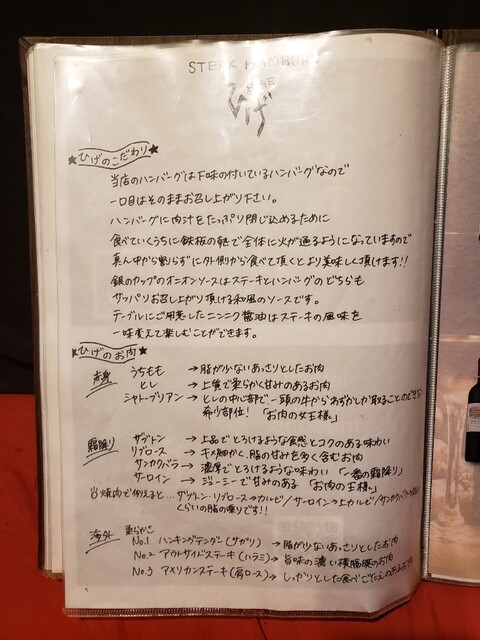 STEAK HAMBURG
ひげ
★ひげのこだわり★
当店のハンバーグは下味の付いているハンバーグなので
一口目はそのままお召し上がり下さい。
ハンバーグに肉汁をたっぷり閉じ込めるために
食べていくうちに鉄板の熱で全体に火が通るようになっていますので
真ん中から割らずに外側から食べて頂くとより美味しく頂けます!!
銀のカップのオニオンソースはステーキとハンバーグのどちらも
サッパリお召し上がり頂ける和風のソースです。
テーブルにご用意したニンニク醤油はステーキの風味を
一味変えて楽しむことができます。
★ひげのお肉★
赤身 うちもも → 脂が少ないあっさりとしたお肉
とし → 上質で柔らかく甘みのあるお肉
シャトーブリアン → としの中心部で一頭の牛からわずかしか取ることのできない
希少部位! 「お肉の女王様」
霜降り ザブトン → 上品でとろけるような食感とコクのある味わい
リブロース → キメ細かく、脂の甘みを多く含むお肉
サンカクバラ → 濃厚でとろけるような味わい 「一番の霜降り」
サーロイン → ジューシーで甘みのある 「お肉の王様」
焼肉で例えると… ザブトン・リブロース→カルビ/サーロイン→上カルビ/サンカクバラ
くらいの脂の乗りです!!
海外 柔らかさ
No.1 ハンギングテンダー(サガリ) → 脂が少ないあっさりとしたお肉
No.2 アウトサイドステーキ(ハラミ) → 旨味の濃い横隔膜のお肉
No.3 アメリカンステーキ(肩ロース) → しっかりとした食べごたえのあるお肉